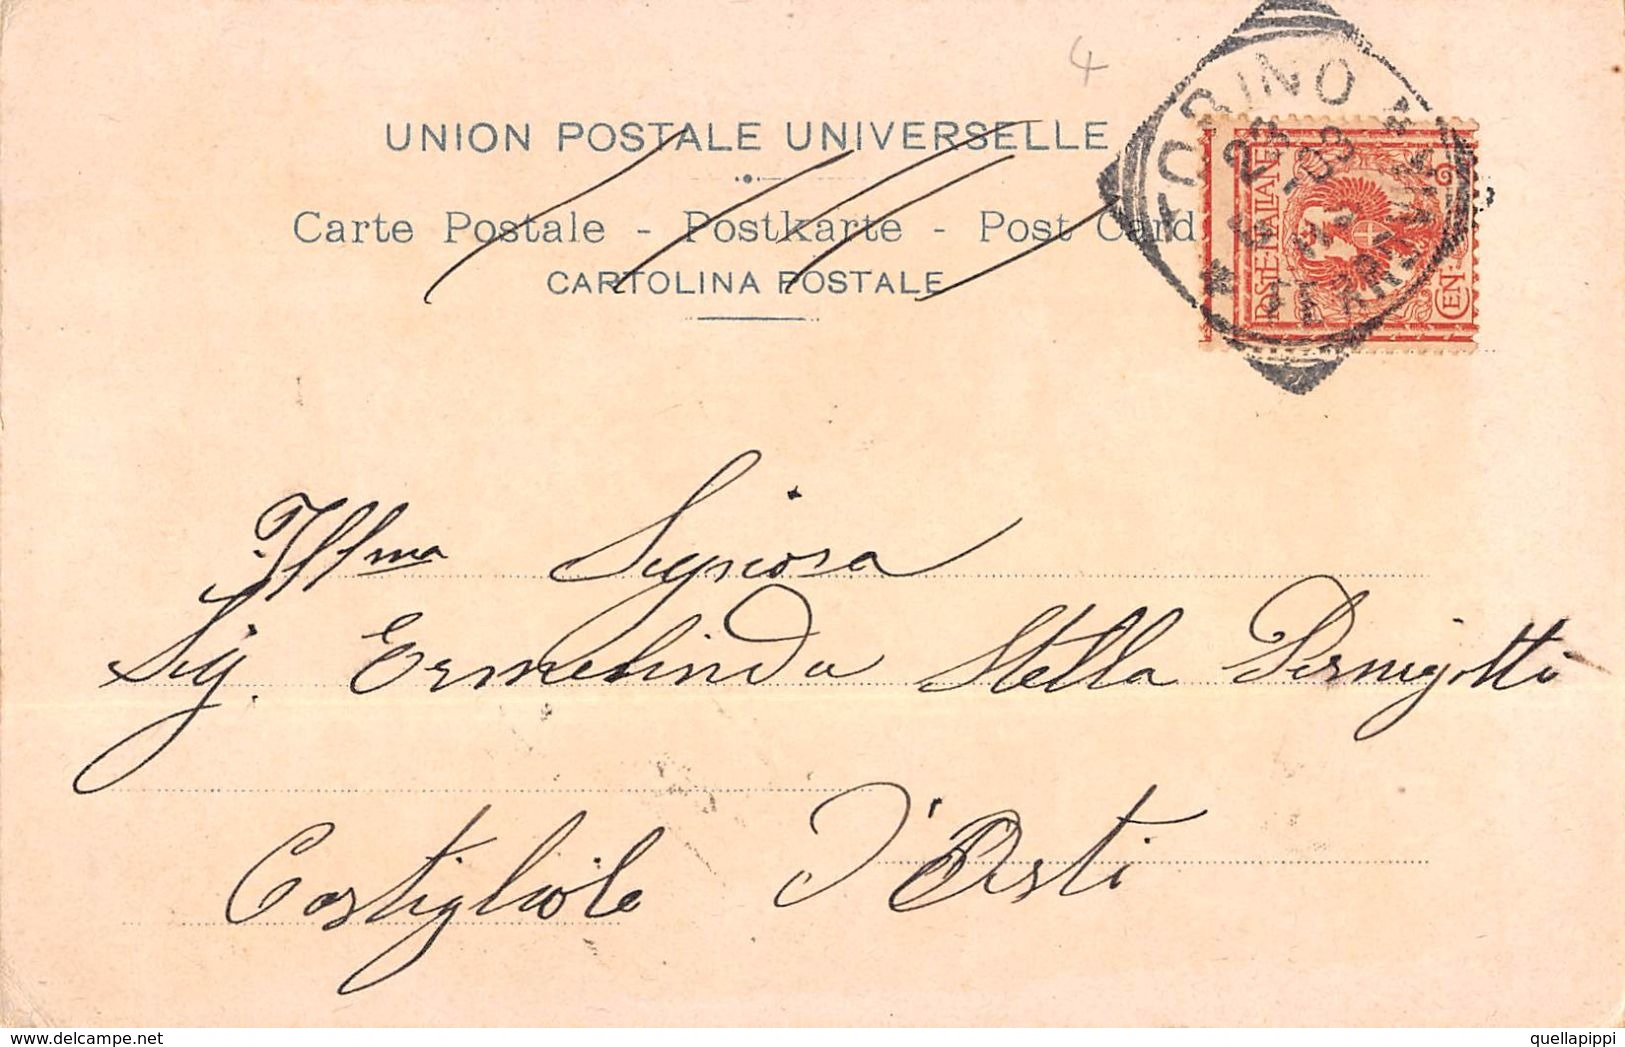 4
UNION POSTALE UNIVERSELLE
Carte Postale - Postkarte - Post Card
CARTOLINA POSTALE
TORINO
23
-03
FERROVIA
POSTE ITALIANE
CEN. 2
Illma Signora
Sig. Ermelinda Stella Pernigotti
Costigliole d'Asti
delcampe.net
quellapippi